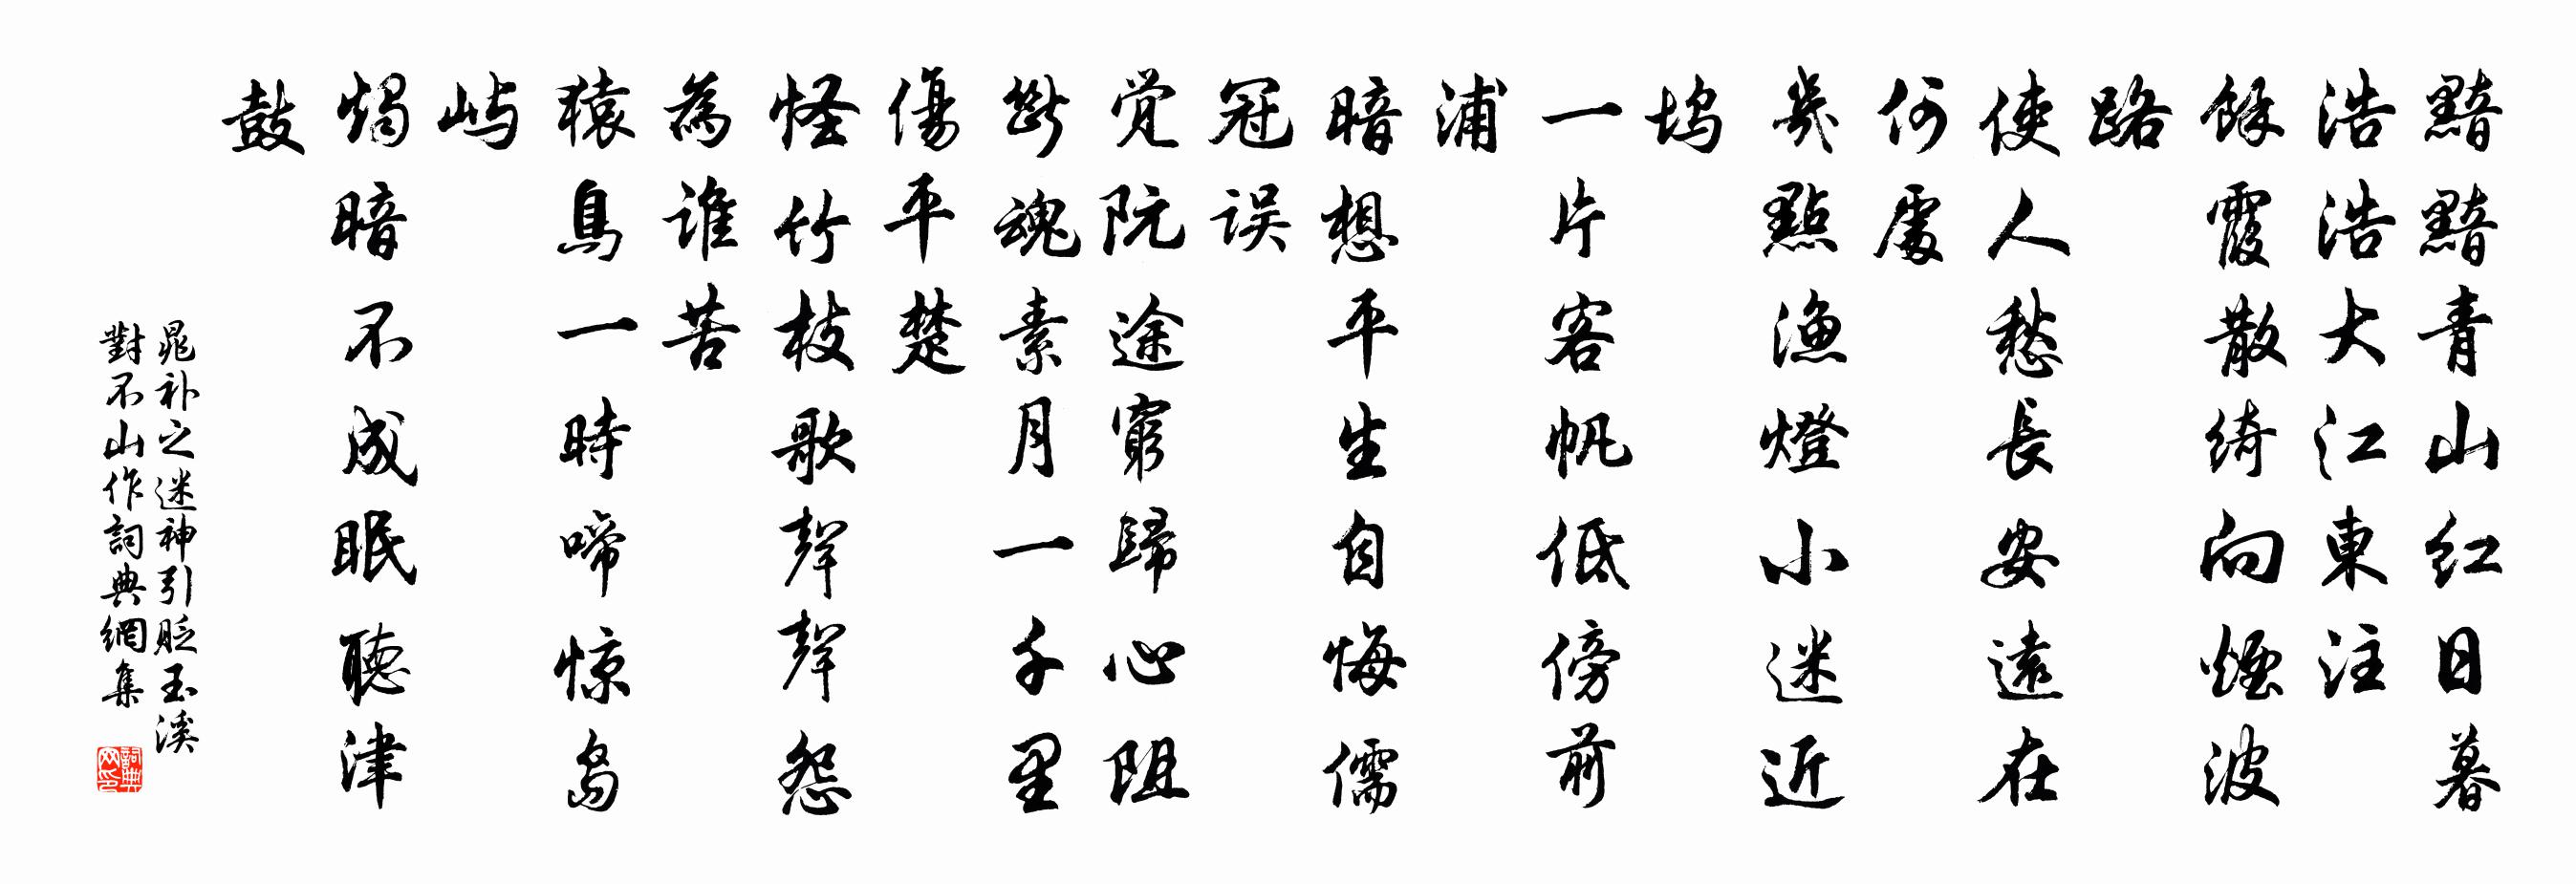 黯黯青山红日暮
浩浩大江東注
餘霞散绮向煙波
路
使人愁長安遠在
何處
幾點漁燈小迷近
坞
一片客帆低傍前
浦
暗想平生自悔儒
冠误
觉阮途窮歸心阻
斷魂素月一千里
傷平楚
怪竹枝歌聲聲怨
為谁苦
猿鳥一時啼惊岛
屿
燭暗不成眠聽津
鼓
晁补之迷神引贬玉溪
對不山作詞典網集